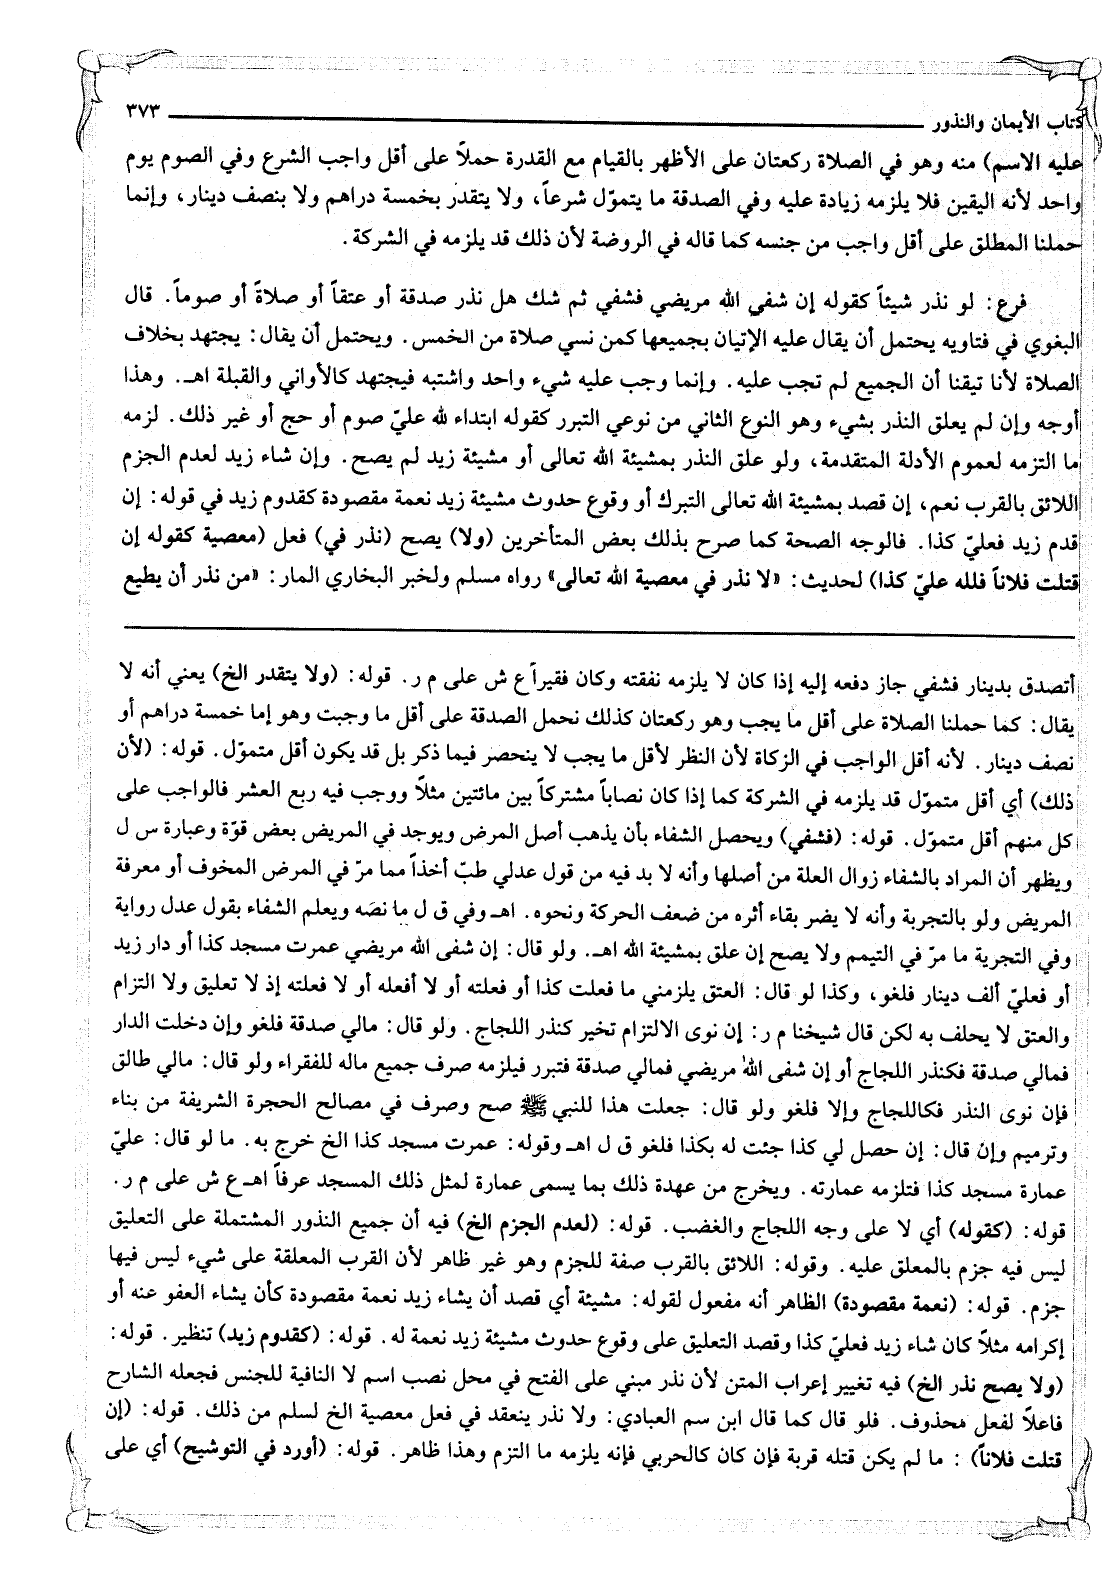 كتاب الأيمان والنذور ٣٧٣
عليه الاسم) منه وهو في الصلاة ركعتان على الأظهر بالقيام مع القدرة حملاً على أقل واجب الشرع وفي الصوم يوم
واحد لأنه اليقين فلا يلزمه زيادة عليه وفي الصدقة ما يتموّل شرعاً، ولا يتقدر بخمسة دراهم ولا بنصف دينار، وإنما
حملنا المطلق على أقل واجب من جنسه كما قاله في الروضة لأن ذلك قد يلزمه في الشركة.
فرع: لو نذر شيئاً كقوله إن شفي الله مريضي فشفي ثم شك هل نذر صدقة أو عتقاً أو صلاةً أو صوماً. قال
البغوي في فتاويه يحتمل أن يقال عليه الإتيان بجميعها كمن نسي صلاة من الخمس. ويحتمل أن يقال: يجتهد بخلاف
الصلاة لأنا تيقنا أن الجميع لم تجب عليه. وإنما وجب عليه شيء واحد واشتبه فيجتهد كالأواني والقبلة اهـ. وهذا
أوجه وإن لم يعلق النذر بشيء وهو النوع الثاني من نوعي التبرر كقوله ابتداء لله عليّ صوم أو حج أو غير ذلك. لزمه
ما التزمه لعموم الأدلة المتقدمة، ولو علق النذر بمشيئة الله تعالى أو مشيئة زيد لم يصح. وإن شاء زيد لعدم الجزم
اللائق بالقرب نعم، إن قصد بمشيئة الله تعالى التبرك أو وقوع حدوث مشيئة زيد نعمة مقصودة كقدوم زيد في قوله: إن
قدم زيد فعليّ كذا. فالوجه الصحة كما صرح بذلك بعض المتأخرين (ولا) يصح (نذر في) فعل (معصية كقوله إن
قتلت فلاناً فلله عليّ كذا) لحديث: «لا نذر في معصية الله تعالى» رواه مسلم ولخبر البخاري المار: «من نذر أن يطيع
أتصدق بدينار فشفي جاز دفعه إليه إذا كان لا يلزمه نفقته وكان فقيراً ع ش على م ر. قوله: (ولا يتقدر الخ) يعني أنه لا
يقال: كما حملنا الصلاة على أقل ما يجب وهو ركعتان كذلك نحمل الصدقة على أقل ما وجبت وهو إما خمسة دراهم أو
نصف دينار. لأنه أقل الواجب في الزكاة لأن النظر لأقل ما يجب لا ينحصر فيما ذكر بل قد يكون أقل متموّل. قوله: (لأن
ذلك) أي أقل متموّل قد يلزمه في الشركة كما إذا كان نصاباً مشتركاً بين مائتين مثلاً ووجب فيه ربع العشر فالواجب على
كل منهم أقل متموّل. قوله: (فشفي) ويحصل الشفاء بأن يذهب أصل المرض ويوجد في المريض بعض قوّة وعبارة س ل
ويظهر أن المراد بالشفاء زوال العلة من أصلها وأنه لا بد فيه من قول عدلي طبّ أخذاً مما مرّ في المرض المخوف أو معرفة
المريض ولو بالتجربة وأنه لا يضر بقاء أثره من ضعف الحركة ونحوه. اهـ وفي ق ل ما نصه ويعلم الشفاء بقول عدل رواية
وفي التجربة ما مرّ في التيمم ولا يصح إن علق بمشيئة الله اهـ. ولو قال: إن شفى الله مريضي عمرت مسجد كذا أو دار زيد
أو فعليّ ألف دينار فلغو، وكذا لو قال: العتق يلزمني ما فعلت كذا أو فعلته أو لا أفعله أو لا فعلته إذ لا تعليق ولا التزام
والعتق لا يحلف به لكن قال شيخنا م ر: إن نوى الالتزام تخير كنذر اللجاج. ولو قال: مالي صدقة فلغو وإن دخلت الدار
فمالي صدقة فكنذر اللجاج أو إن شفى الله مريضي فمالي صدقة فتبرر فيلزمه صرف جميع ماله للفقراء ولو قال: مالي طالق
فإن نوى النذر فكاللجاج وإلا فلغو ولو قال: جعلت هذا للنبي ﷺ صح وصرف في مصالح الحجرة الشريفة من بناء
وترميم وإن قال: إن حصل لي كذا جئت له بكذا فلغو ق ل اهـ وقوله: عمرت مسجد كذا الخ خرج به. ما لو قال: عليّ
عمارة مسجد كذا فتلزمه عمارته. ويخرج من عهدة ذلك بما يسمى عمارة لمثل ذلك المسجد عرفاً اهـ ع ش على م ر.
قوله: (كقوله) أي لا على وجه اللجاج والغضب. قوله: (لعدم الجزم الخ) فيه أن جميع النذور المشتملة على التعليق
ليس فيه جزم بالمعلق عليه. وقوله: اللائق بالقرب صفة للجزم وهو غير ظاهر لأن القرب المعلقة على شيء ليس فيها
جزم. قوله: (نعمة مقصودة) الظاهر أنه مفعول لقوله: مشيئة أي قصد أن يشاء زيد نعمة مقصودة كأن يشاء العفو عنه أو
إكرامه مثلاً كان شاء زيد فعليّ كذا وقصد التعليق على وقوع حدوث مشيئة زيد نعمة له. قوله: (كقدوم زيد) تنظير. قوله:
(ولا يصح نذر الخ) فيه تغيير إعراب المتن لأن نذر مبني على الفتح في محل نصب اسم لا النافية للجنس فجعله الشارح
فاعلاً لفعل محذوف. فلو قال كما قال ابن سم العبادي: ولا نذر ينعقد في فعل معصية الخ لسلم من ذلك. قوله: (إن
قتلت فلاناً) : ما لم يكن قتله قربة فإن كان كالحربي فإنه يلزمه ما التزم وهذا ظاهر. قوله: (أورد في التوشيح) أي على